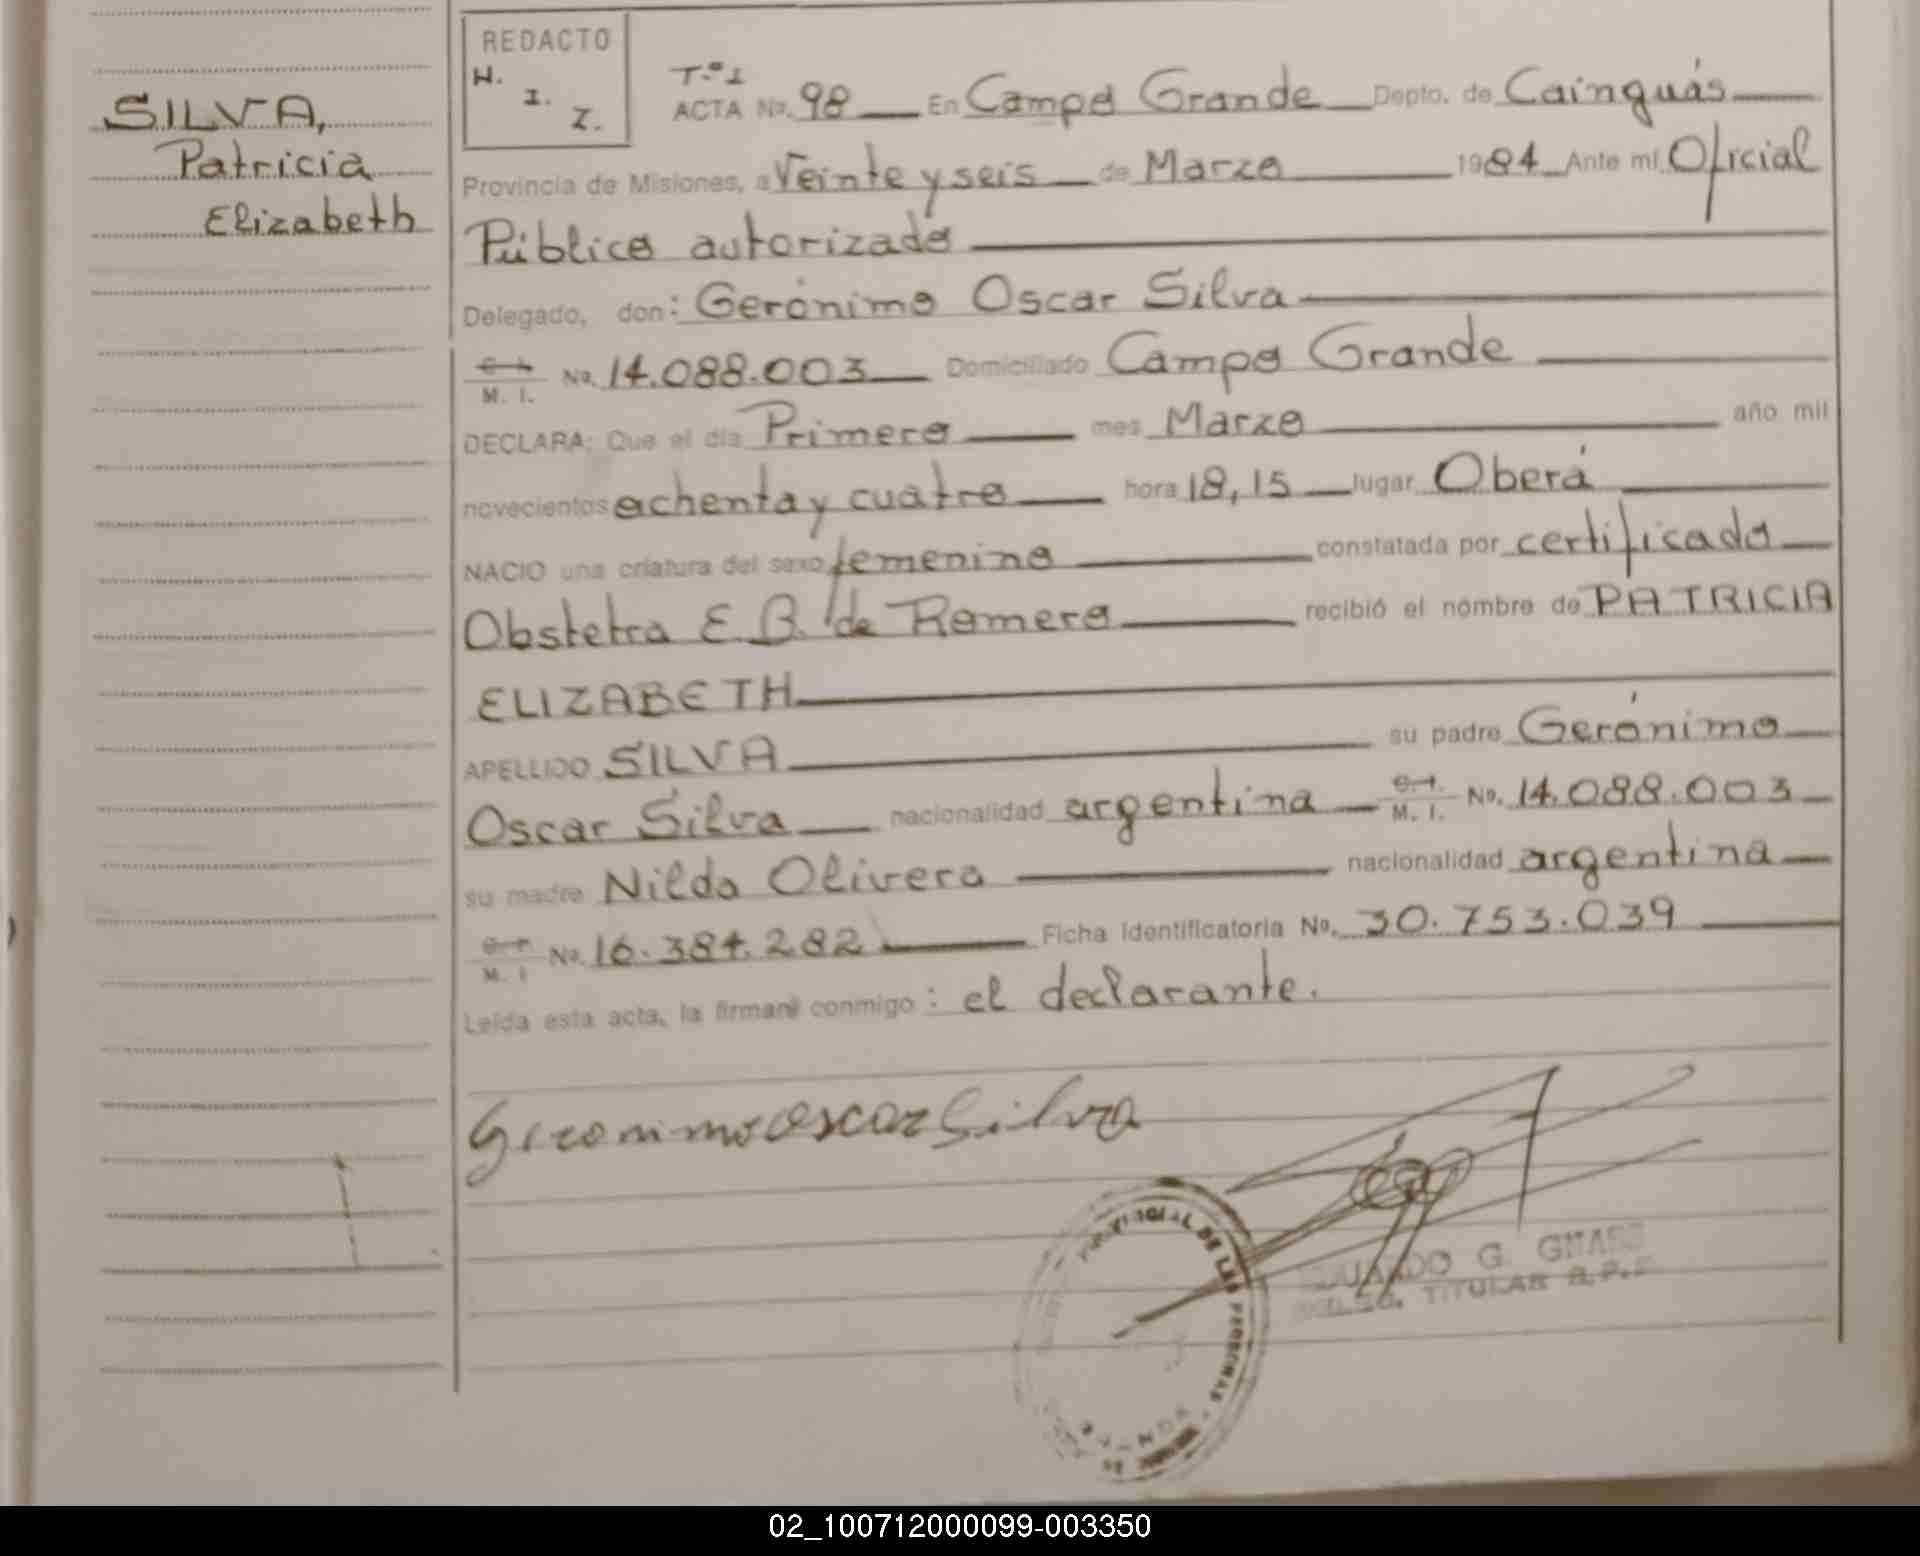 SILVA,
Patricia
Elizabeth
REDACTO
H.
I.
Z.
T.º 1
ACTA No. 98 En Campo Grande Depto. de Cainguás
Provincia de Misiones, a Veinte y seis de Marzo 1984 Ante mí, Oficial
Público autorizado
Delegado, don: Gerónimo Oscar Silva
M. I. No. 14.088.003 Domiciliado Campo Grande
DECLARA: Que el día Primero mes Marzo año mil
novecientos ochenta y cuatro hora 18,15 lugar Oberá
NACIO una criatura del sexo femenino constatada por certificado
Obstetra E. B. de Romero recibió el nombre de PATRICIA
ELIZABETH
APELLIDO SILVA su padre Gerónimo
Oscar Silva nacionalidad argentina C.I. M. I. No. 14.088.003
su madre Nilda Olivera nacionalidad argentina
M. I No. 16.384.282 Ficha Identificatoria No. 30.753.039
Leída esta acta, la firmará conmigo : el declarante.
Geronimo oscar Silva
PROVINCIAL DE LAS PERSONAS
G.
TITULAR R.P.
02_100712000099-003350